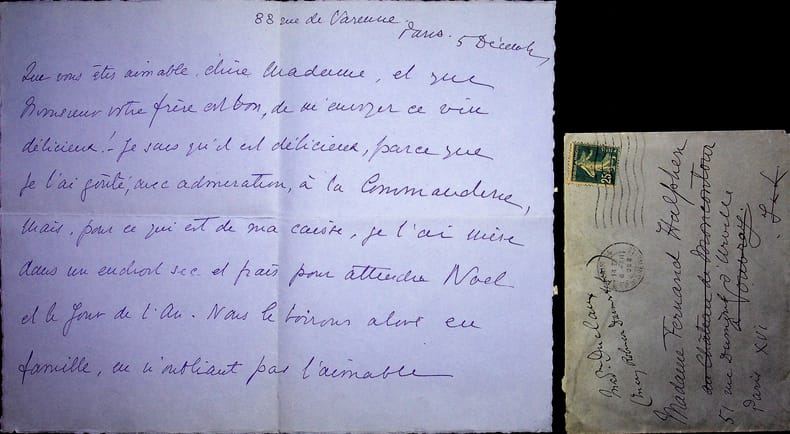 88 rue de Varenne.
Paris. 5 Décembre
Que vous êtes aimable, chère Madame, et que
Monsieur votre frère est bon, de m'envoyer ce vin
délicieux! - Je sais qu'il est délicieux, parce que
je l'ai goûté, avec admiration, à la Commanderie,
mais, pour ce qui est de ma caisse, je l'ai mise
dans un endroit sec et frais pour attendre Noel
et le Jour de l'An. Nous le boirons alors en
famille, en n'oubliant pas l'aimable
25
Madame Fernand Halphen
au Château de Moncontour
51 rue Dumont d'Urville
à Vouvray
Paris XVI
Mad. Duclaux
(Mary Robinson Darmesteter)